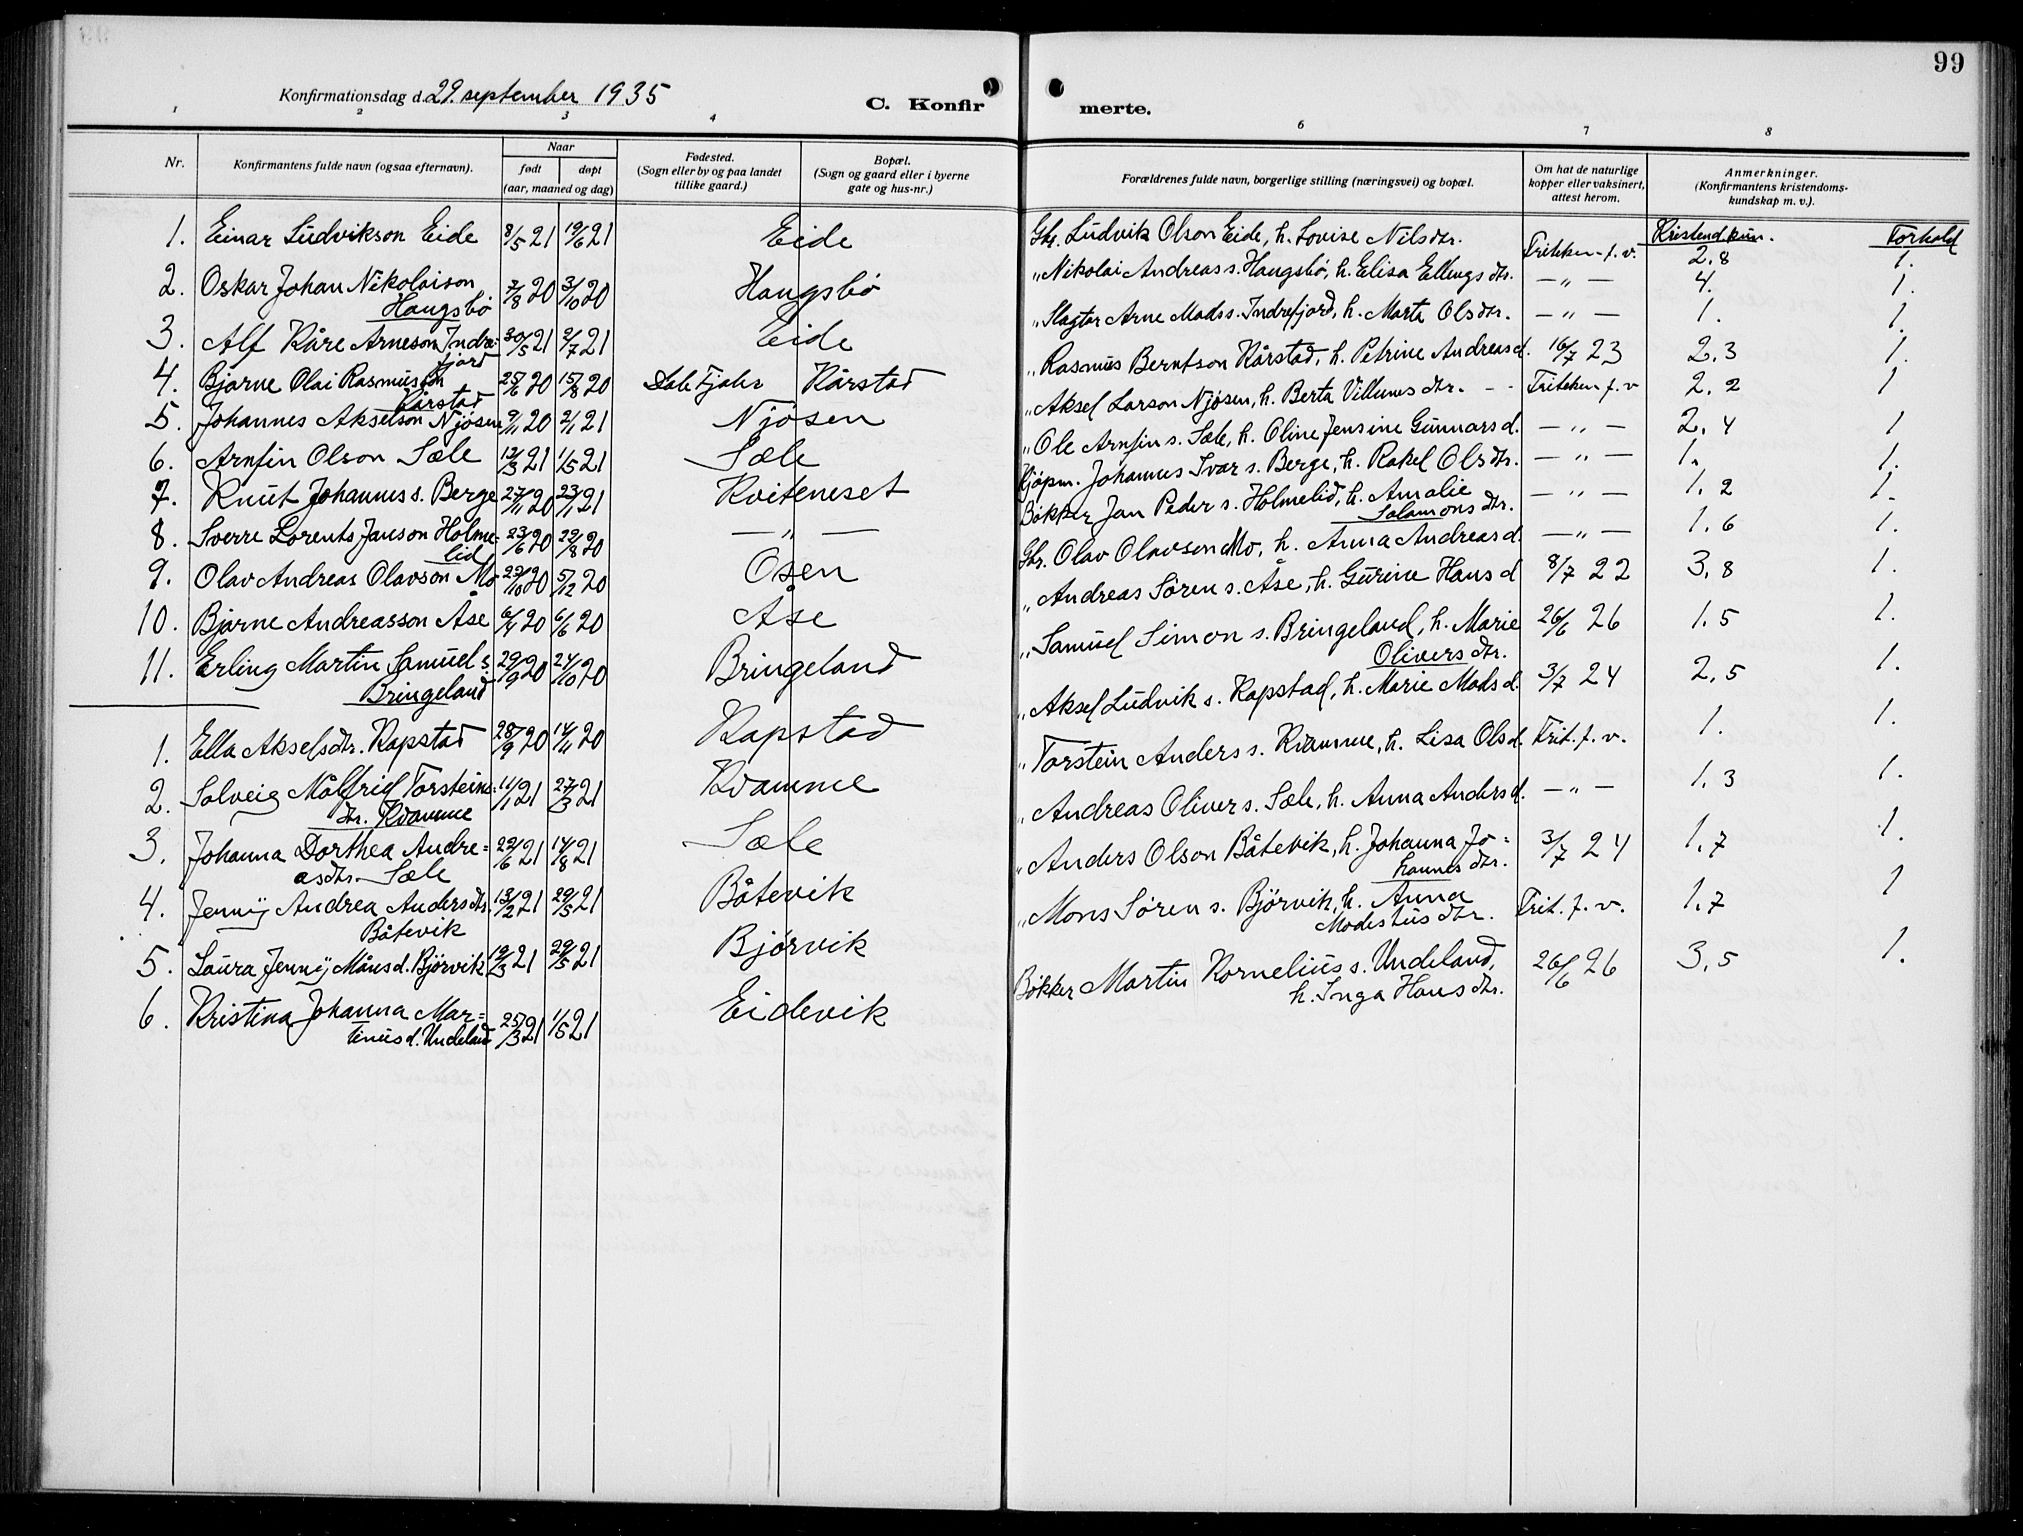 99
Konfirmationsdag d. 29. september 1935
C. Konfirmerte.
1 2 3 4 6 7 8
Nr.
Konfirmantens fulde navn (ogsaa efternavn).
Naar
født døpt
(aar, maaned og dag)
Fødested.
(Sogn eller by og paa landet
tillike gaard.)
Bopæl.
(Sogn og gaard eller i byerne
gate og hus-nr.)
Forældrenes fulde navn, borgerlige stilling (næringsvei) og bopæl.
Om hat de naturlige
kopper eller vaksinert,
attest herom.
Anmerkninger.
(Konfirmantens kristendoms-
kundskap m. v.).
Kristendkun. Forhold
1. Einar Ludvikson Eide 8/5 21 19/6 21 Eide Gbr. Ludvik Olson Eide, h. Lovise Nilsdtr. Fritken f. v. 2,8 1.
2. Oskar Johan Nikolaison
Haugsbø 7/8 20 3/10 20 Haugsbø " Nikolai Andreas s. Haugsbø, h. Elisa Ellingsdtr. — " — 4. 1.
3. Alf Kåre Arneson Indre=
fjord 30/5 21 2/7 21 Eide " Slagtar Arne Mads s. Indrefjord, h. Marta Olsdtr. — " — 1. 1.
4. Bjarne Olai Rasmusson
Kårstad 25/6 20 15/8 20 Dale Fjaler Kårstad " Rasmus Berntson Kårstad, h. Petrine Andreasd. 16/7 23 2,3 1.
5. Johannes Akselson Njøsen 9/11 20 2/1 21 Njøsen " Aksel Larson Njøsen, h. Berta Villumsdtr. Fritken f. v 2,2 1
6. Arnfin Olson Sæle 12/3 21 1/5 21 Sæle " Ole Arnfin s. Sæle, h. Oline Jensine Gunnarsd. — " — 2,4 1
7. Knut Johannes s. Berge 27/11 20 23/1 21 Kviteneset Kjøpm. Johannes Ivar s. Berge, h. Rakel Olsdtr. — " — 1. 1.
8. Sverre Lorents Janson Holme=
lid 23/6 20 22/8 20 — " — Bøkker Jan Peder s. Holmelid, h. Amalie
Salamonsdtr. — " — 1,2 1.
9. Olav Andreas Olavson Mo 23/10 20 5/12 20 Osen Gbr. Olav Olavson Mo, h. Anna Andreasd. — " — 1,6 1.
10. Bjarne Andreasson Åse 6/4 20 6/6 20 Åse " Andreas Søren s. Åse, h. Gurine Hansd 8/7 22 3,8 1.
11. Erling Martin Samuels.
Bringeland 29/9 20 24/10 20 Bringeland " Samuel Simon s. Bringeland, h. Marie
Oliversdtr. 26/6 26 1,5 1.
1. Ella Akselsdtr. Rapstad 28/9 20 14/11 20 Rapstad " Aksel Ludvik s. Rapstad, h. Marie Madsd. 3/7 24 2,5 1.
2. Solveig Målfrid Torsteins=
dtr. Kvamme 11/1 21 27/3 21 Kvamme " Torstein Anders s. Kvamme, h. Lisa Olsd. Frit. f. v. 1. 1.
3. Johanna Dorthea Andre=
asdtr. Sæle 22/6 21 14/8 21 Sæle " Andreas Oliver s. Sæle, h. Anna Andersd. — " — 1,3 1.
4. Jenny Andrea Andersdtr.
Båtevik 13/2 21 29/5 21 Båtevik " Anders Olson Båtevik, h. Johanna Jo=
hannesdtr. 3/7 24 1,7 1.
5. Laura Jenny Månsd. Bjørvik 19/3 21 29/5 21 Bjørvik " Mons Søren s. Bjørvik, h. Anna
Modestusdtr. Frit. f. v. 1,7 1
6. Kristina Johanna Mar=
tinusd. Undeland 25/3 21 1/5 21 Eidevik Bøkker Martin Kornelius s. Undeland,
h. Inga Hansdtr. 26/6 26 3,5 1.